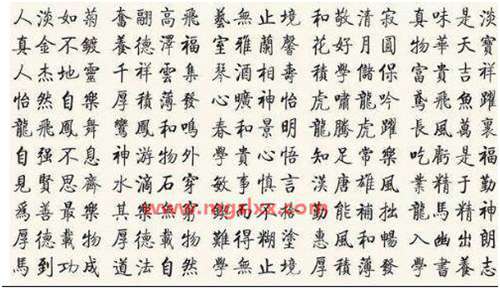 人淡如菊 奮翮高飛 藝無止境 和敬清寂 真味是淡
真金不鍍 養德澤福 室雅蘭馨 花好月圓 物華天寶
人杰地靈 千祥雲集 琴酒相壽 積學儲保 富貴吉祥
怡然自樂 厚積薄發 心曠神怡 虎嘯龍吟 鳶飛魚躍
龍飛鳳舞 鸞鳳和鳴 春和景明 龍騰虎躍 長風萬裏
自强不息 神游物外 學貴心悟 知足常樂 吃虧是福
見賢思齊 水滴石穿 敏事慎言 漢唐雄風 業精于勤
爲善最樂 能補拙 馬精神
厚德載物 其樂 難得糊塗 惠風和暢 幽出朗
馬到功成 道法自然 學無止境 厚積薄發 學書養志